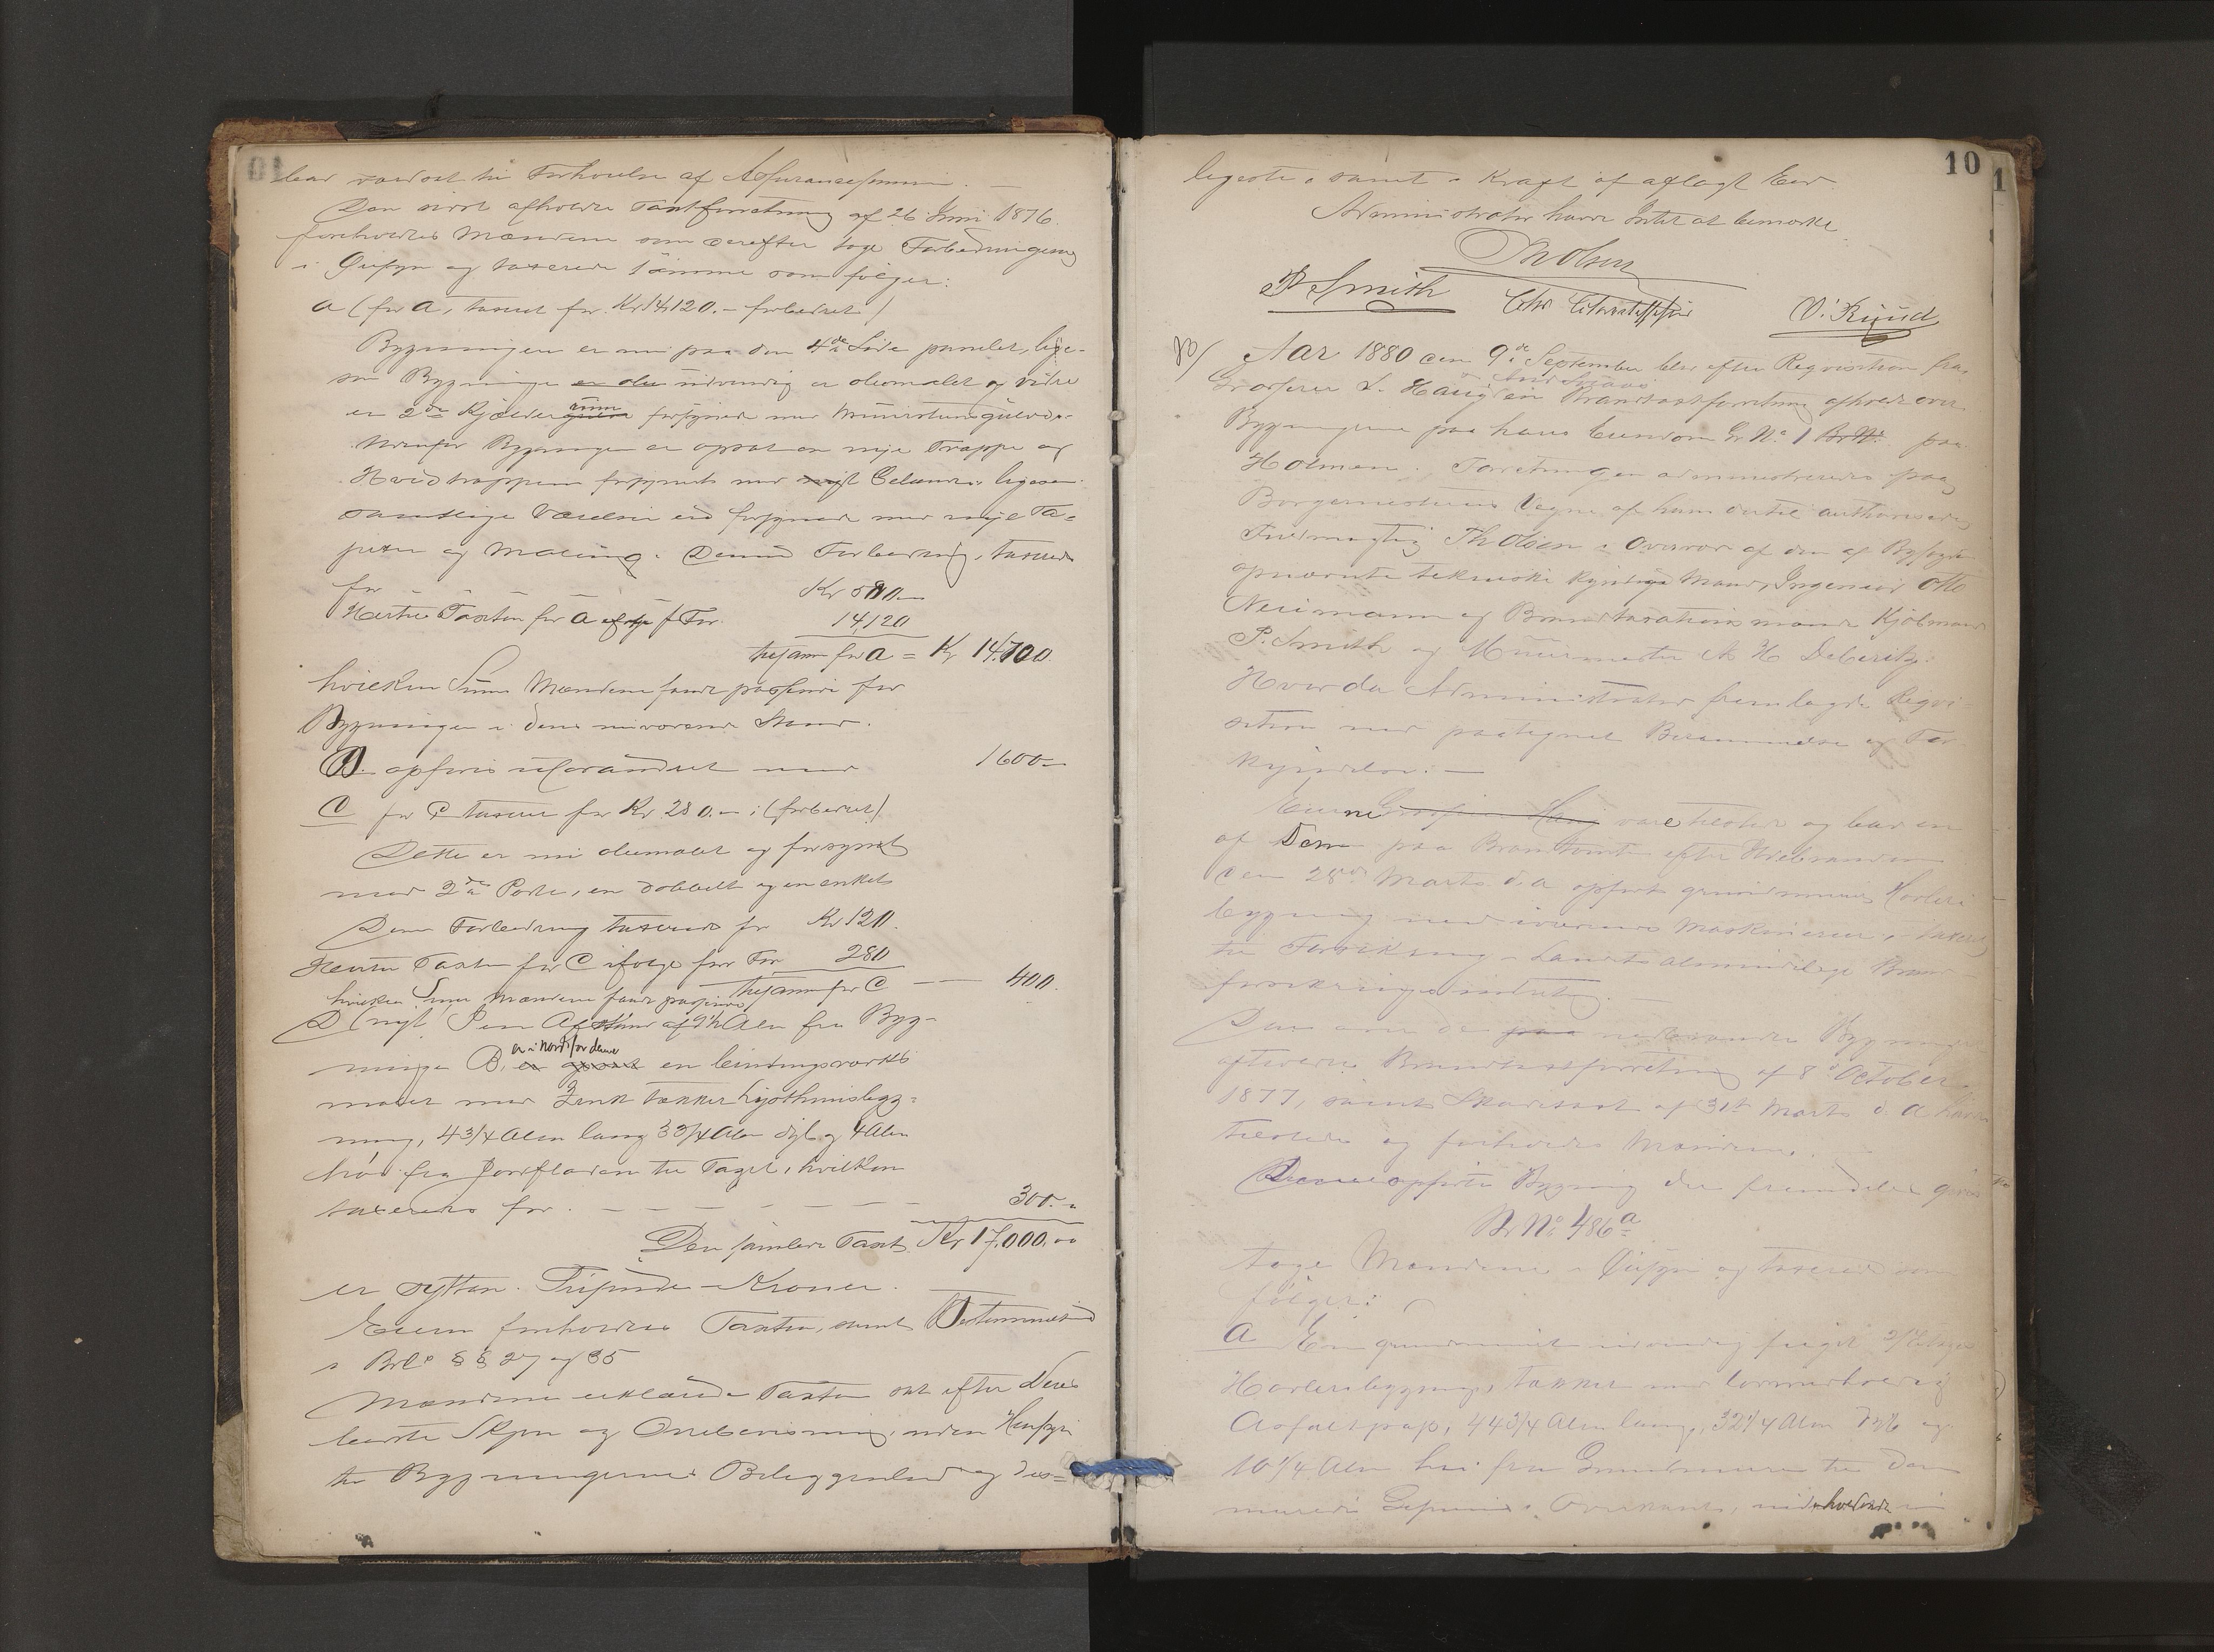 bad værdsat til Forhøielse af Assurancesummen. —
Den sidst afholdte Taxtforretning af 26 Juni 1876
foreholdtes Mændene som derefter toge Forbedringerne
i Øiesyn og taxerede samme som følger:
a (før a, taxeret for Kr 14,120.- forbedret)
Bygningen er nu paa den 4de Side panelet, lige-
som Bygningen er den udvendig er oliemalet og videre
er 2de Kjælderrum forsynede med Muurstensgulv.
Udenfor Bygningen er opsat en ny Trappe og
Hovedtrappen forsynet med nyt Gelænder ligesom
samtlige Værelser ere forsynede med nye Ta-
peter og Maling. Denne Forbedring, taxeredes
for Kr 580.-
Hertil Taxten for a ifølge f For. 14,120
tilsammen for a = Kr 14,700.
hvilken Sum Mændene fandt passende for
Bygningen i dens nuværende Stand.
B. opføres uforandret med 1600.-
C for C taxeret for Kr 280.- (forbedret)
Dette er nu oliemalet og forsynet
med 2de Porte, en dobbelt og en enkelt
Denne Forbedring taxeredes for Kr 120.
Hertil Taxten for C ifølge før For 280
tilsammen for C — 400.
hvilken Sum Mændene fandt passende
D (nyt) I en Afstand af 9½ Alen fra Byg-
er i Nord for denne
ningen B, er opsat en bindingsværks
malet med Zink tækket Lysthuusbyg-
ning, 4 3/4 Alen lang 3 3/4 Alen dyb og 4 Alen
høi fra Jordfladen til Taget, hvilken
taxeredes for — 300.-
Den samlede Taxt Kr 17,000.00
er sytten Tusinde Kroner.
Eieren foreholdtes Taxten, samt Bestemmelserne
i Brl. §§ 27 og 35
Mændene erklærede Taxten sat efter Deres
bedste Skjøn og Overbevisning, uden Hensyn
til Bygningernes Beliggenhed og des-
10
ligeste, samt i Kraft af aflagt Eed.
Administrator havde Intet at bemærke
Th Olsen
P Smith Chr Christophersen O. Ruud
Aar 1880 den 9de September blev efter Requisition fra
Grosserer L. Haug en Brandtaxtforretning afholdt over
Bygningerne paa hans Eiendom Gr No 1 Br No paa
Holmen. Forretningen administreredes paa
Borgermesterens Vegne af hans dertil authoriserede
Fuldmægtig Th Olsen i Overvær af den af Byfogden
opnævnte tekniske kyndige Mand, Ingeniør Otto
Neumann og Brandtaxationsmænd Kjøbmand
P. Smith og Muurmester A H Deberitz.
Hvorda Administrator fremlagde Requi-
sition med paategnet Berammelse og For-
kyndelse. —
Eierne Grosserer Haug vare tilstede og bad en
af Dem paa Brandtomten efter Ildebranden
den 28de Marts d. a. opført grundmuret Høvleri
bygning med iværende Maskinerier taxeret
til Forsikring i Landets almindelige Brand-
forsikringsindretning. —
Den over de paa nedbrændte Bygninger
afholdte Brandtaxtforretning af 8 October
1877, samt Skadetaxt af 31te Marts d. a. havdes
tilstede og foreholdtes Mændene.
Denne opførte Bygning der fremdeles gives
Br No 486a
toge Mændene i Øiesyn og taxerede som
følger:
a En grundmuret udvendig fuget 2 Etages
Høvleribygning, tækket med
Asfaltpap, 44 3/4 Alen lang, 32 1/4 Alen dyb og
10 1/4 Alen høi fra Grundmuren til den
murede Gesims Overkant, indeholdende